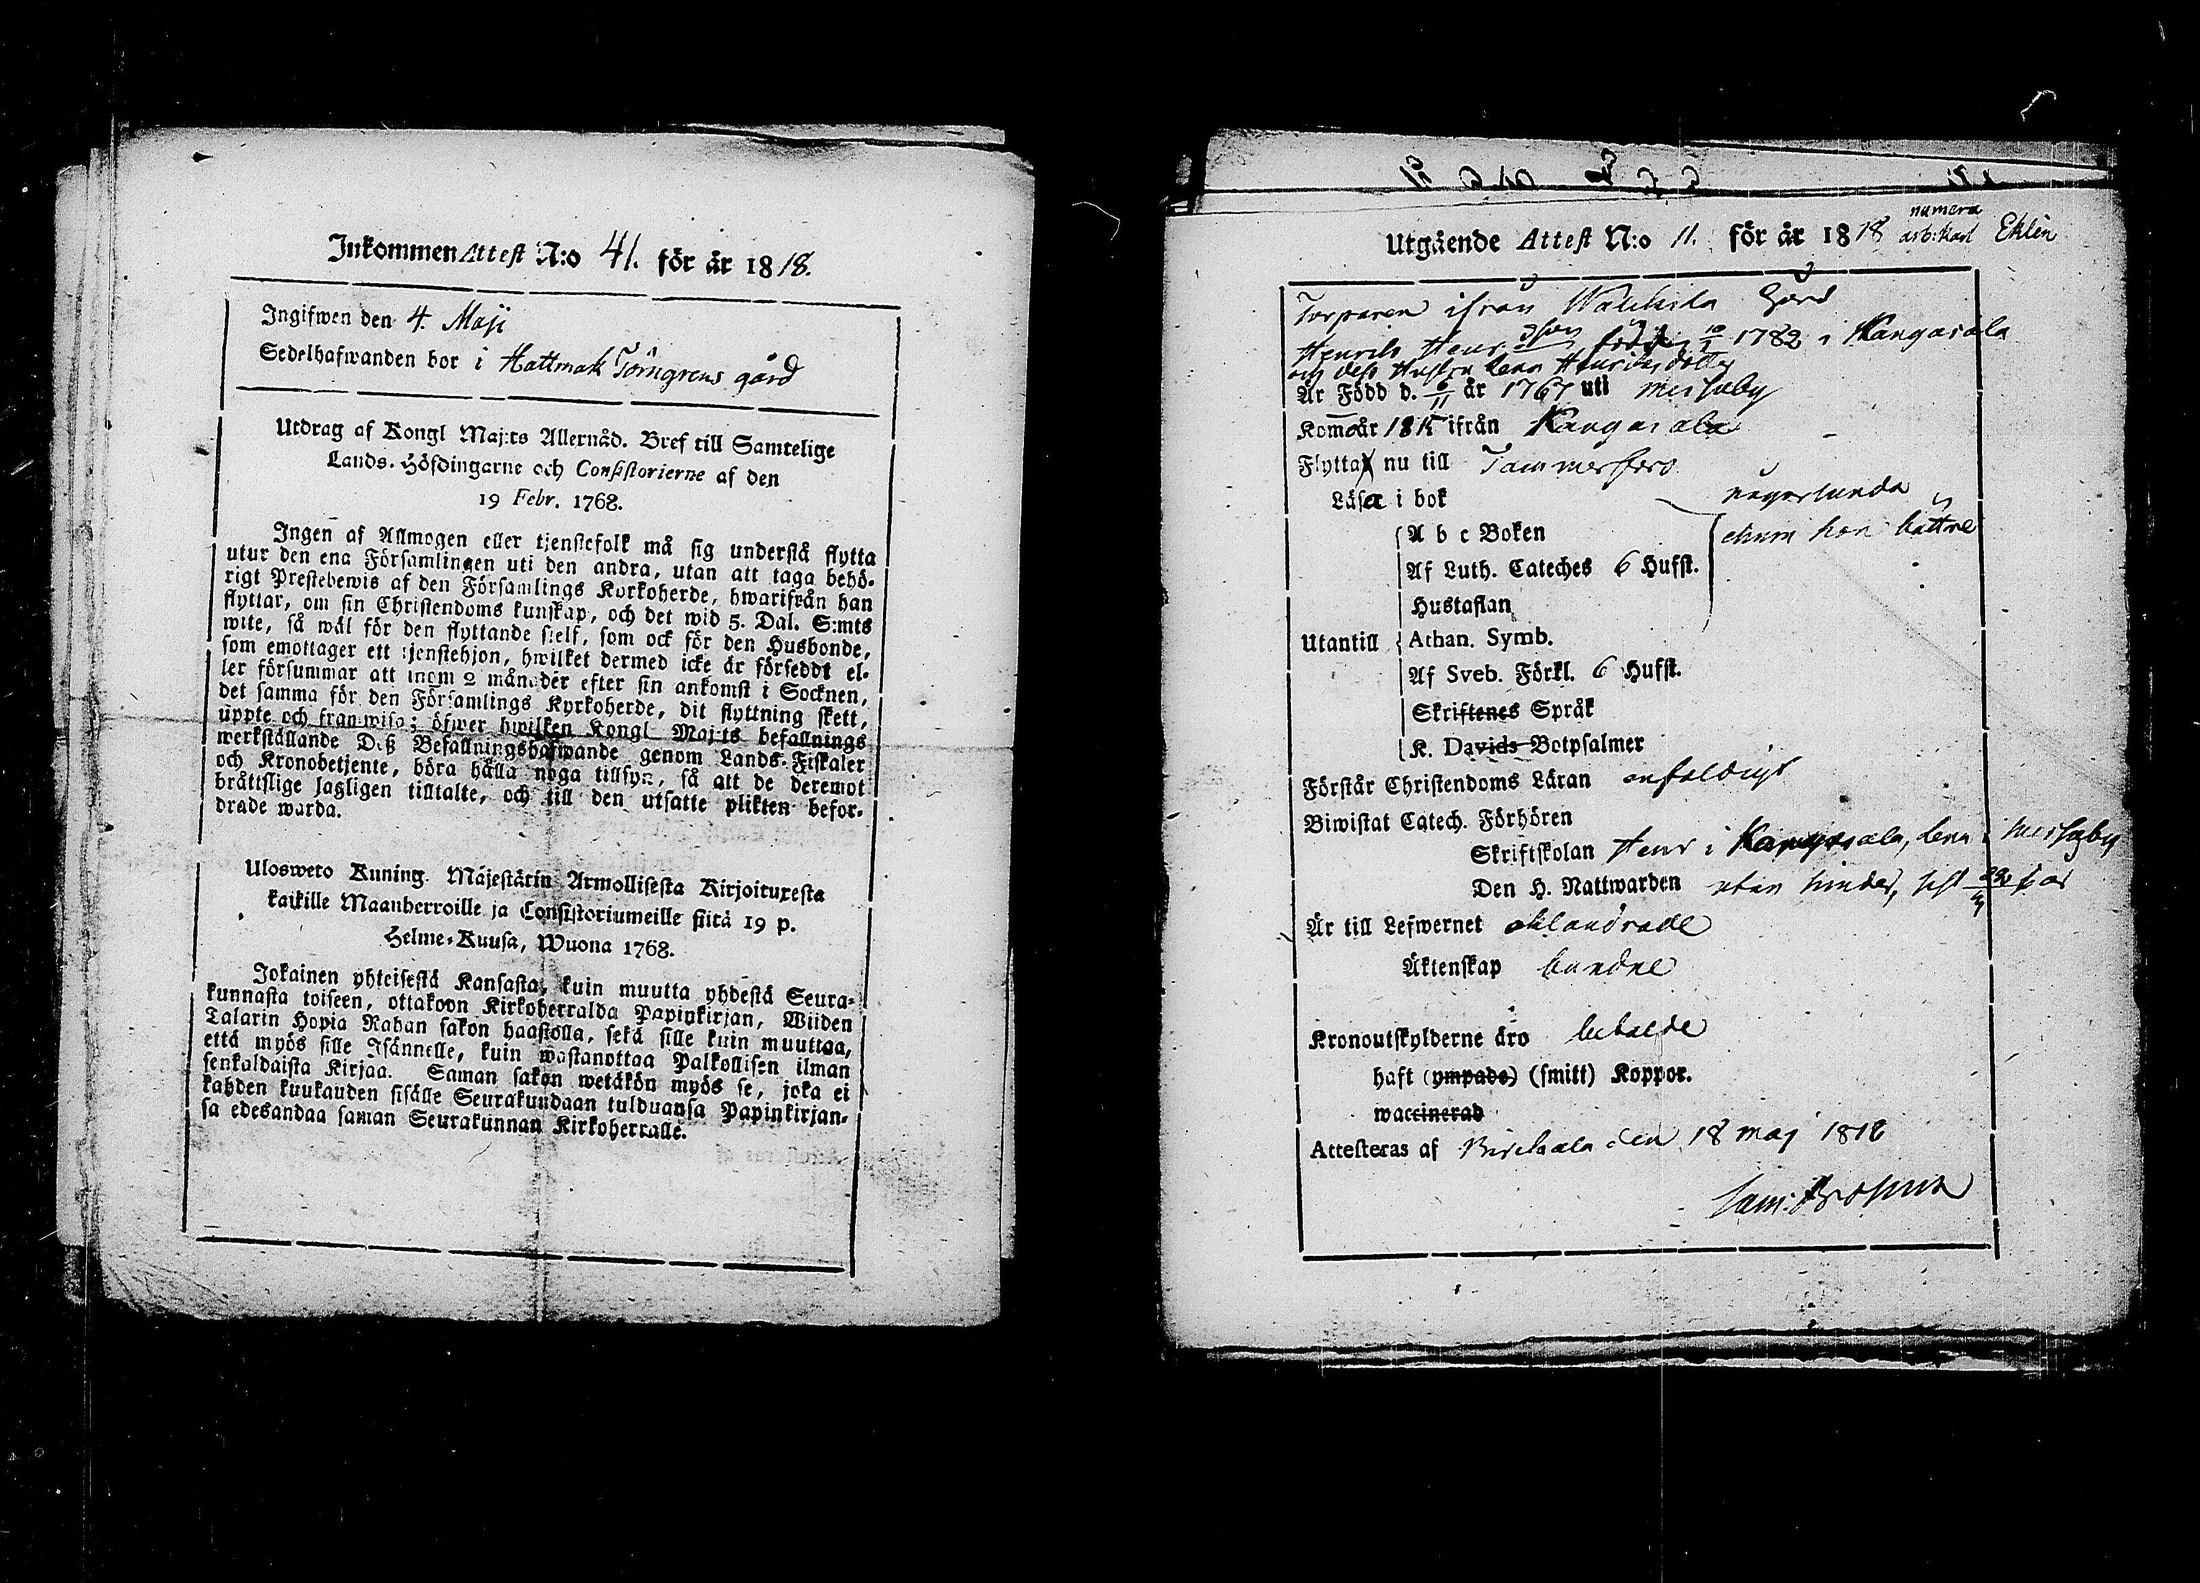 Inkommen Attest N:o 41. för år 1818.
Ingifwen den 4. Maji
Sedelhafwanden bor i Hattmak Törngrens gård
Utdrag af Kongl Maj:ts Allernåd. Bref till Samtelige
Lands-Höfdingarne och Consistorierne af den
19 Febr. 1768.
Ingen af Allmogen eller tjenstefolk må sig understå flytta
utur den ena Församlingen uti den andra, utan att taga behö-
rigt Prestebewis af den Församlings Kyrkoherde, hwarifrån han
flyttar, om sin Christendoms kunskap, och det wid 5. Dal. S:mts
wite, så wäl för den flyttande sielf, som ock för den Husbonde,
som emottager ett tjenstehjon, hwilket dermed icke är förseddt el-
ler försummar att inom 2 månader efter sin ankomst i Socknen,
det samma för den Församlings Kyrkoherde, dit flyttning skett,
uppte och framwisa; öfwer hwilken Kongl Maj:ts befallnings
werkställande Deß Befallningshafwande genom Lands-Fiskaler
och Kronobetjente, böra hålla noga tillsyn, så att de deremot
bråttslige lagligen tilltalte, och till den utsatte plikten befor-
drade warda.
Ulosweto Kuning. Majestätin Armollisesta Kirjoituxesta
kaikille Maanherroille ja Consistoriumeille siitä 19 p.
Helme-Kuusa, Wuona 1768.
Jokainen yhteisestä Kansasta, kuin muutta yhdestä Seura-
kunnasta toiseen, ottakoon Kirkoherralda Papinkirjan, Wiiden
Talarin Hopia Rahan sakon haastolla, sekä sille kuin muuttaa,
että myös sille Isännelle, kuin wastanottaa Palkollisen ilman
senkaldaista Kirjaa. Saman sakon wetäkön myös se, joka ei
kahden kuukauden sisälle Seurakundaan tulduansa Papinkirjan-
sa edesandaa saman Seurakunnan Kirkoherralle.
Utgående Attest N:o 11. för år 1818 numera arb:karl Eklén
Torparen ifrån Gård
Henrik Henr: född 10/1 1782 i Kangasala
och dess Hustru Lena Henriksdotter
Är Född d. 6/11 år 1767 uti Messuby
Kom år 1815 ifrån Kangasala
Flytta nu till Tammerfors
Läsa i bok någorlunda
A b c Boken ehuru hon bättre
Af Luth. Cateches 6 Hufst.
Hustaflan
Utantill Athan. Symb.
Af Sveb. Förkl. 6 Hufst.
Skriftenes Språk
K. Davids Botpsalmer
Förstår Christendoms Läran enfaldigt
Biwistat Catech. Förhören
Skriftskolan Henr i Kangasala, Lena i Messuby
Den H. Nattwarden utan hinder, sist
Är till Lefwernet oklandrade
Äktenskap bundne
Kronoutskylderne äro betalde
haft (ympade) (smitt) Koppor.
waccinerad
Attesteras af Birckala den 18 maj 1818
Sam: